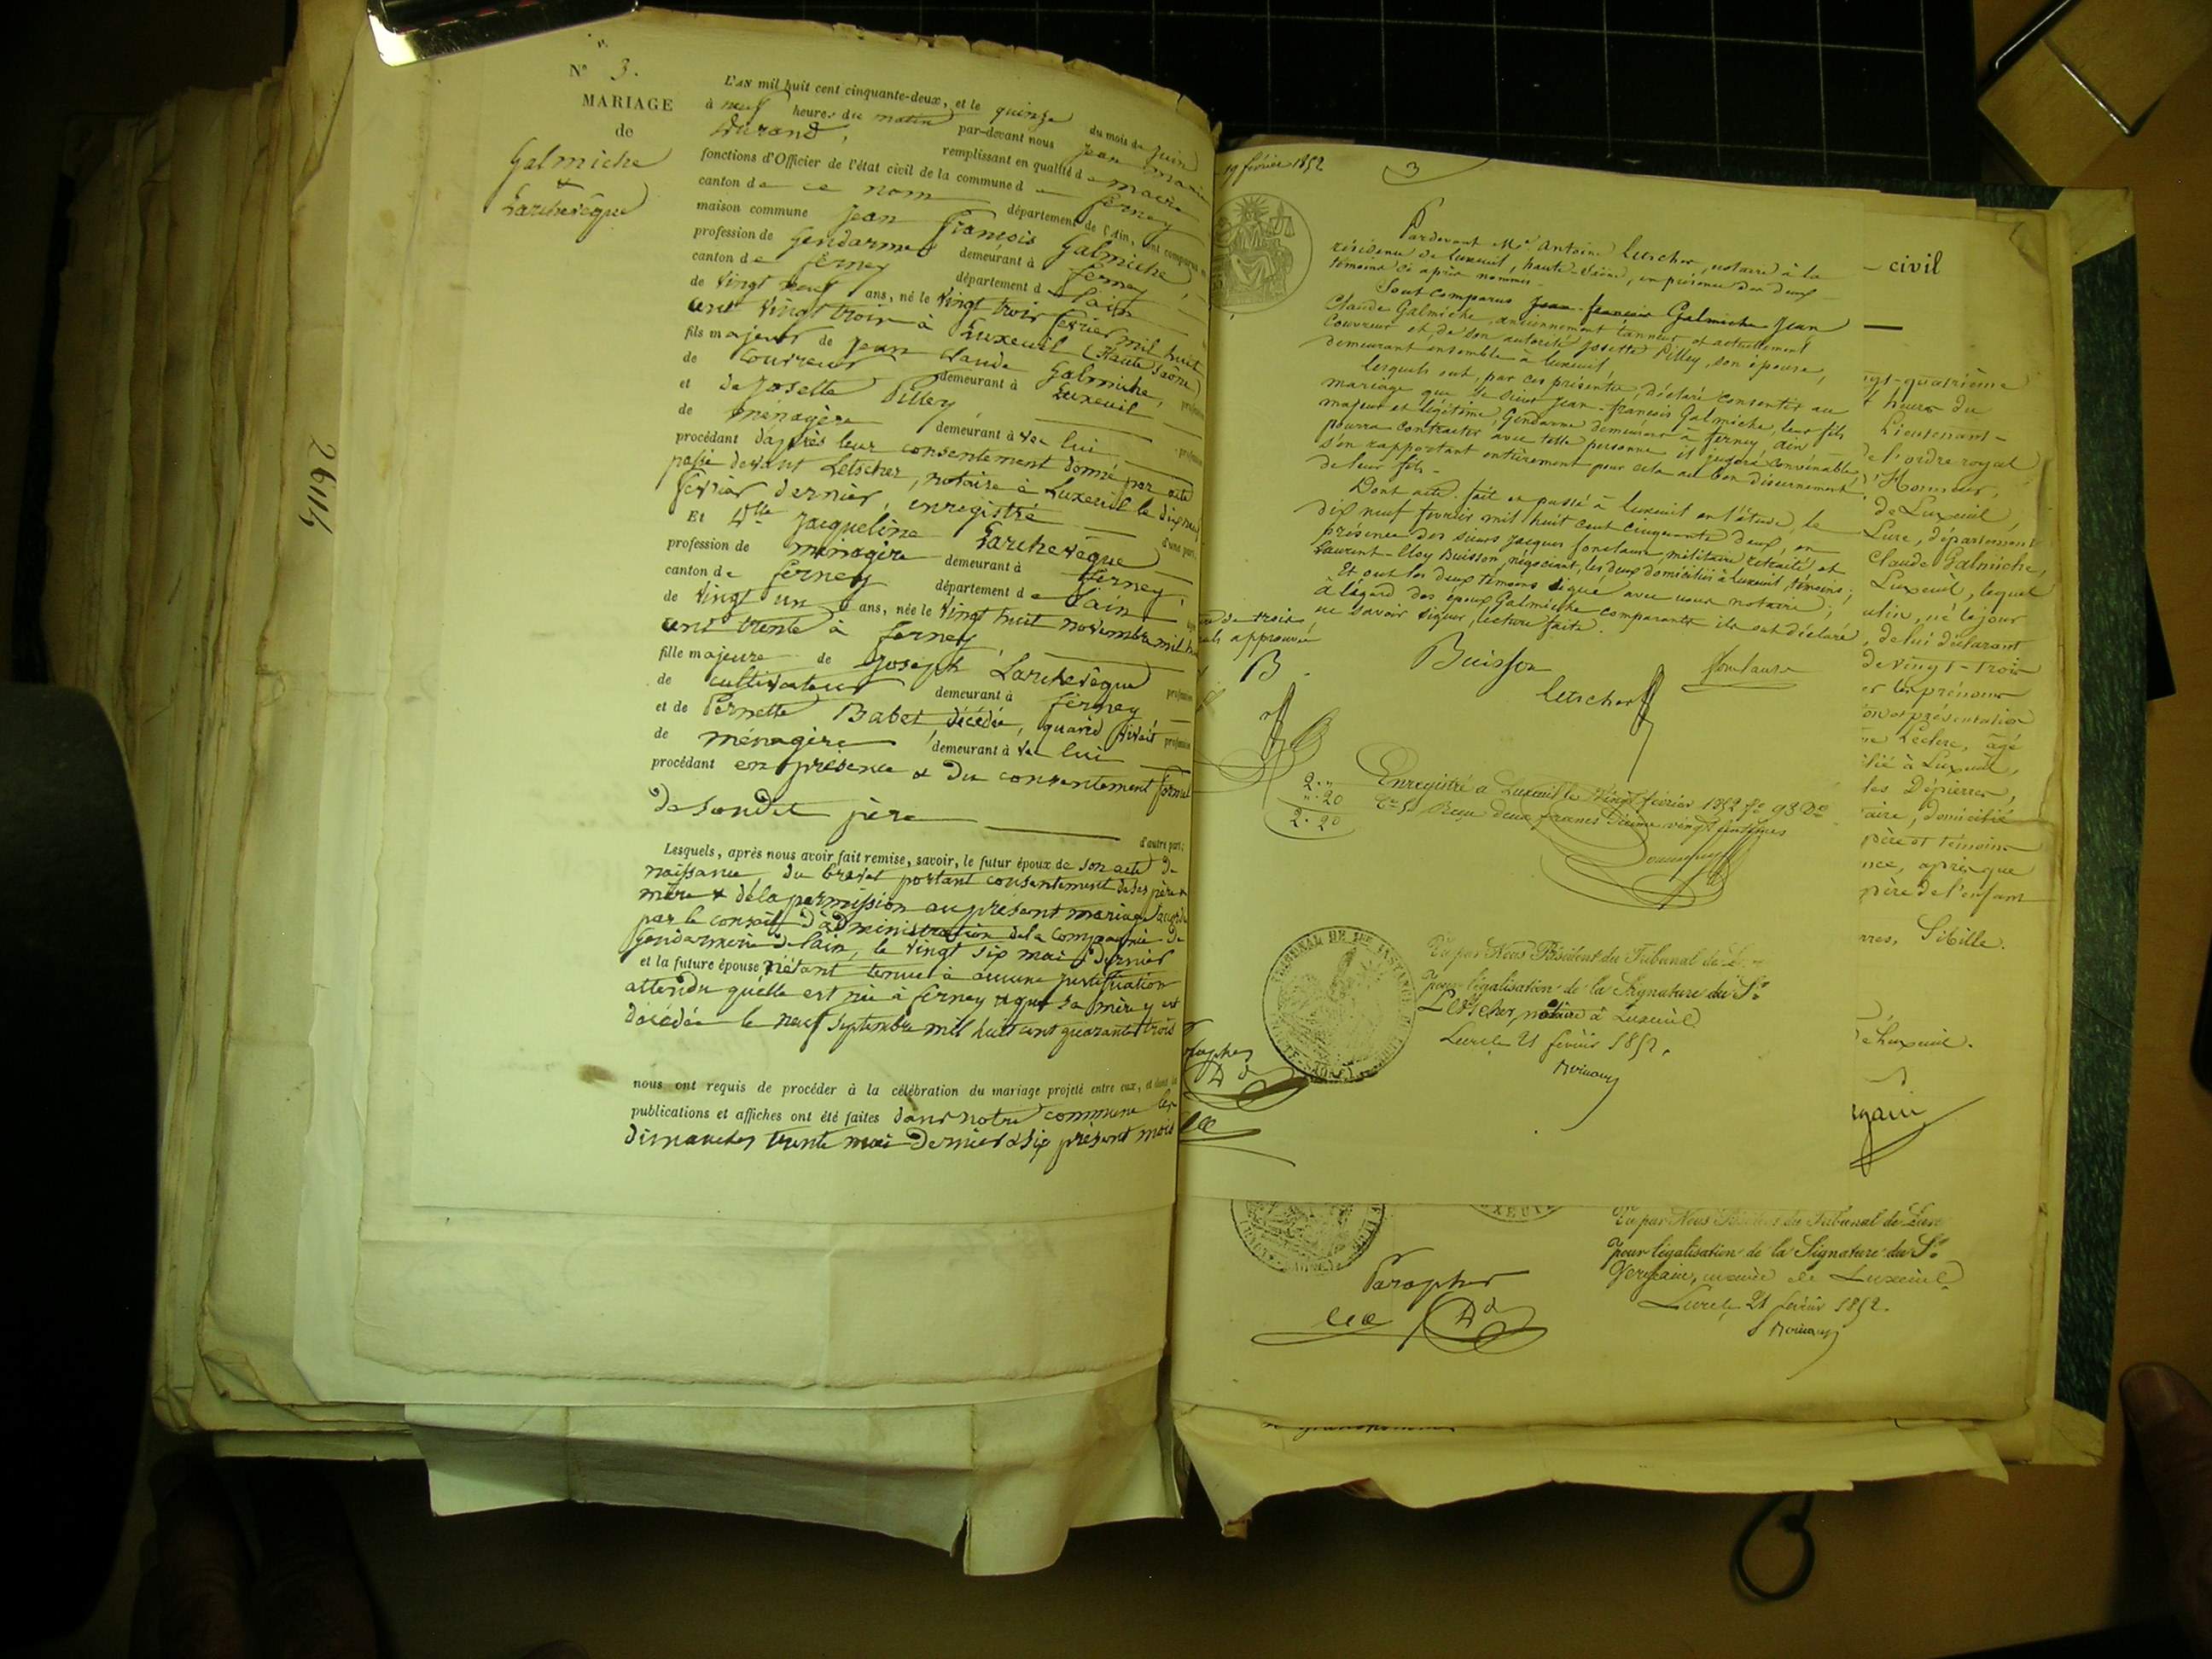 N° 3.
MARIAGE
de
Galmiche
&
Larchevêque
L'AN mil huit cent cinquante-deux, et le quinze du mois de juin
à neuf heures du matin par-devant nous Jean Marie
Durand, remplissant en qualité de maire
fonctions d'Officier de l'état civil de la commune de ferney
canton de ce nom département de l'Ain, ont comparu en
maison commune Jean François Galmiche,
profession de Gendarme demeurant à ferney,
canton de ferney département de l'ain
de Vingt neuf ans, né le Vingt trois février mil huit
cent vingt trois à Luxeuil (Haute Saône)
fils majeur de Jean Claude Galmiche,
de couvreur demeurant à Luxeuil
et de Josette Pilley
de ménagère demeurant à vec lui
procédant d'après leur consentement donné par acte
passé devant Letscher, notaire à Luxeuil le dix neuf
février dernier, enregistré d'une part,
Et Dlle Jacqueline Larchevêque
profession de ménagère demeurant à ferney,
canton de ferney département de l'ain
de vingt un ans, née le Vingt huit novembre mil h
cent trente à ferney,
fille majeure de Joseph Larchevêque
de cultivateur demeurant à ferney
et de Pernette Babet, décédée, quand vivait
de ménagère demeurant à vec lui
procédant en présence & du consentement formel
de son dit père d'autre part;
Lesquels, après nous avoir fait remise, savoir, le futur époux de son acte de
naissance, du brevet portant consentement de ses père &
mère & de la permission au présent mariage
par le conseil d'administration de la compagnie de
Gendarmerie de l'ain, le vingt six mai dernier
et la future épouse n'étant tenue à aucune justification
attendu qu'elle est née à ferney & que sa mère y est
décédée le neuf septembre mil huit cent quarante trois
nous ont requis de procéder à la célébration du mariage projeté entre eux, et dont les
publications et affiches ont été faites dans notre commune les
dimanches trente mai dernier & six présent mois
26114
19 février 1852
3
Pardevant Me Antoine Letscher, notaire à la
résidence de Luxeuil, haute-Saône, en présence des deux
témoins ci après nommés.
Sont comparus Jean-françois Galmiche Jean
Claude Galmiche, anciennement tanneur et actuellement
couvreur et, de son autorité Josette Pilley, son épouse,
demeurant ensemble à Luxeuil,
lesquels ont, par ces présentes, déclaré consentir au
mariage que le sieur Jean-françois Galmiche, leur fils
majeur et légitime, Gendarme demeurant à ferney ain
pourra contracter avec telle personne il jugera convenable,
s'en rapportant entièrement pour cela au bon discernement
de leur fils.
Dont acte. fait et passé à Luxeuil en l'étude, le
dix neuf février mil huit cent cinquante deux, en
présence des sieurs Jacques fonclause, militaire retraité et
Laurent-Eloy Buisson, négociant, les deux domiciliés à Luxeuil, témoins;
Et ont les deux témoins signé avec nous notaire;
à l'égard des époux Galmiche comparants ils ont déclaré
ne savoir signer, lecture faite.
de trois
approuvés
B
Buisson
Letscher
fonclause
2. "
". 20
2. 20
Enregistré à Luxeuil le vingt février 1852 fo 93 Vo
Co 5 Reçu deux francs décime vingt centimes
TRIBUNAL DE 1ère INSTANCE
Vu par Nous Président du Tribunal de
pour légalisation de la Signature du Sr
Letscher, notaire à Luxeuil
Lure le 21 février 1852.
civil
ngt-quatrième
heures du
Lieutenant-
de l'ordre royal
d'Honneur,
de Luxeuil,
Lure, département
Claude Galmiche,
Luxeuil, lequel
culin, né le jour
de lui déclarant
de vingt-trois
er les prénoms
on et présentation
Leclerc, âgé
ilié à Luxeuil,
les Dépierres,
taire, domicilié
père et témoins
nce, après que
père de l'enfant
rres, Sibille.
de Luxeuil.
Vu par Nous Président du Tribunal de Lure
pour légalisation de la Signature du Sr
Germain, mairie de Luxeuil
Lure le 21 février 1852.
Parapher
Dd